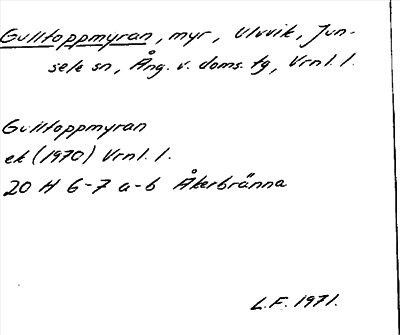 Gulltoppmyran, myr, Ulvvik, Jun-
sele sn, Ång. v. doms. tg, Vrnl. l.
Gulltoppmyran
ek (1970) Vrnl. l.
20 H 6-7 a-b Åkerbränna
L.F. 1971.